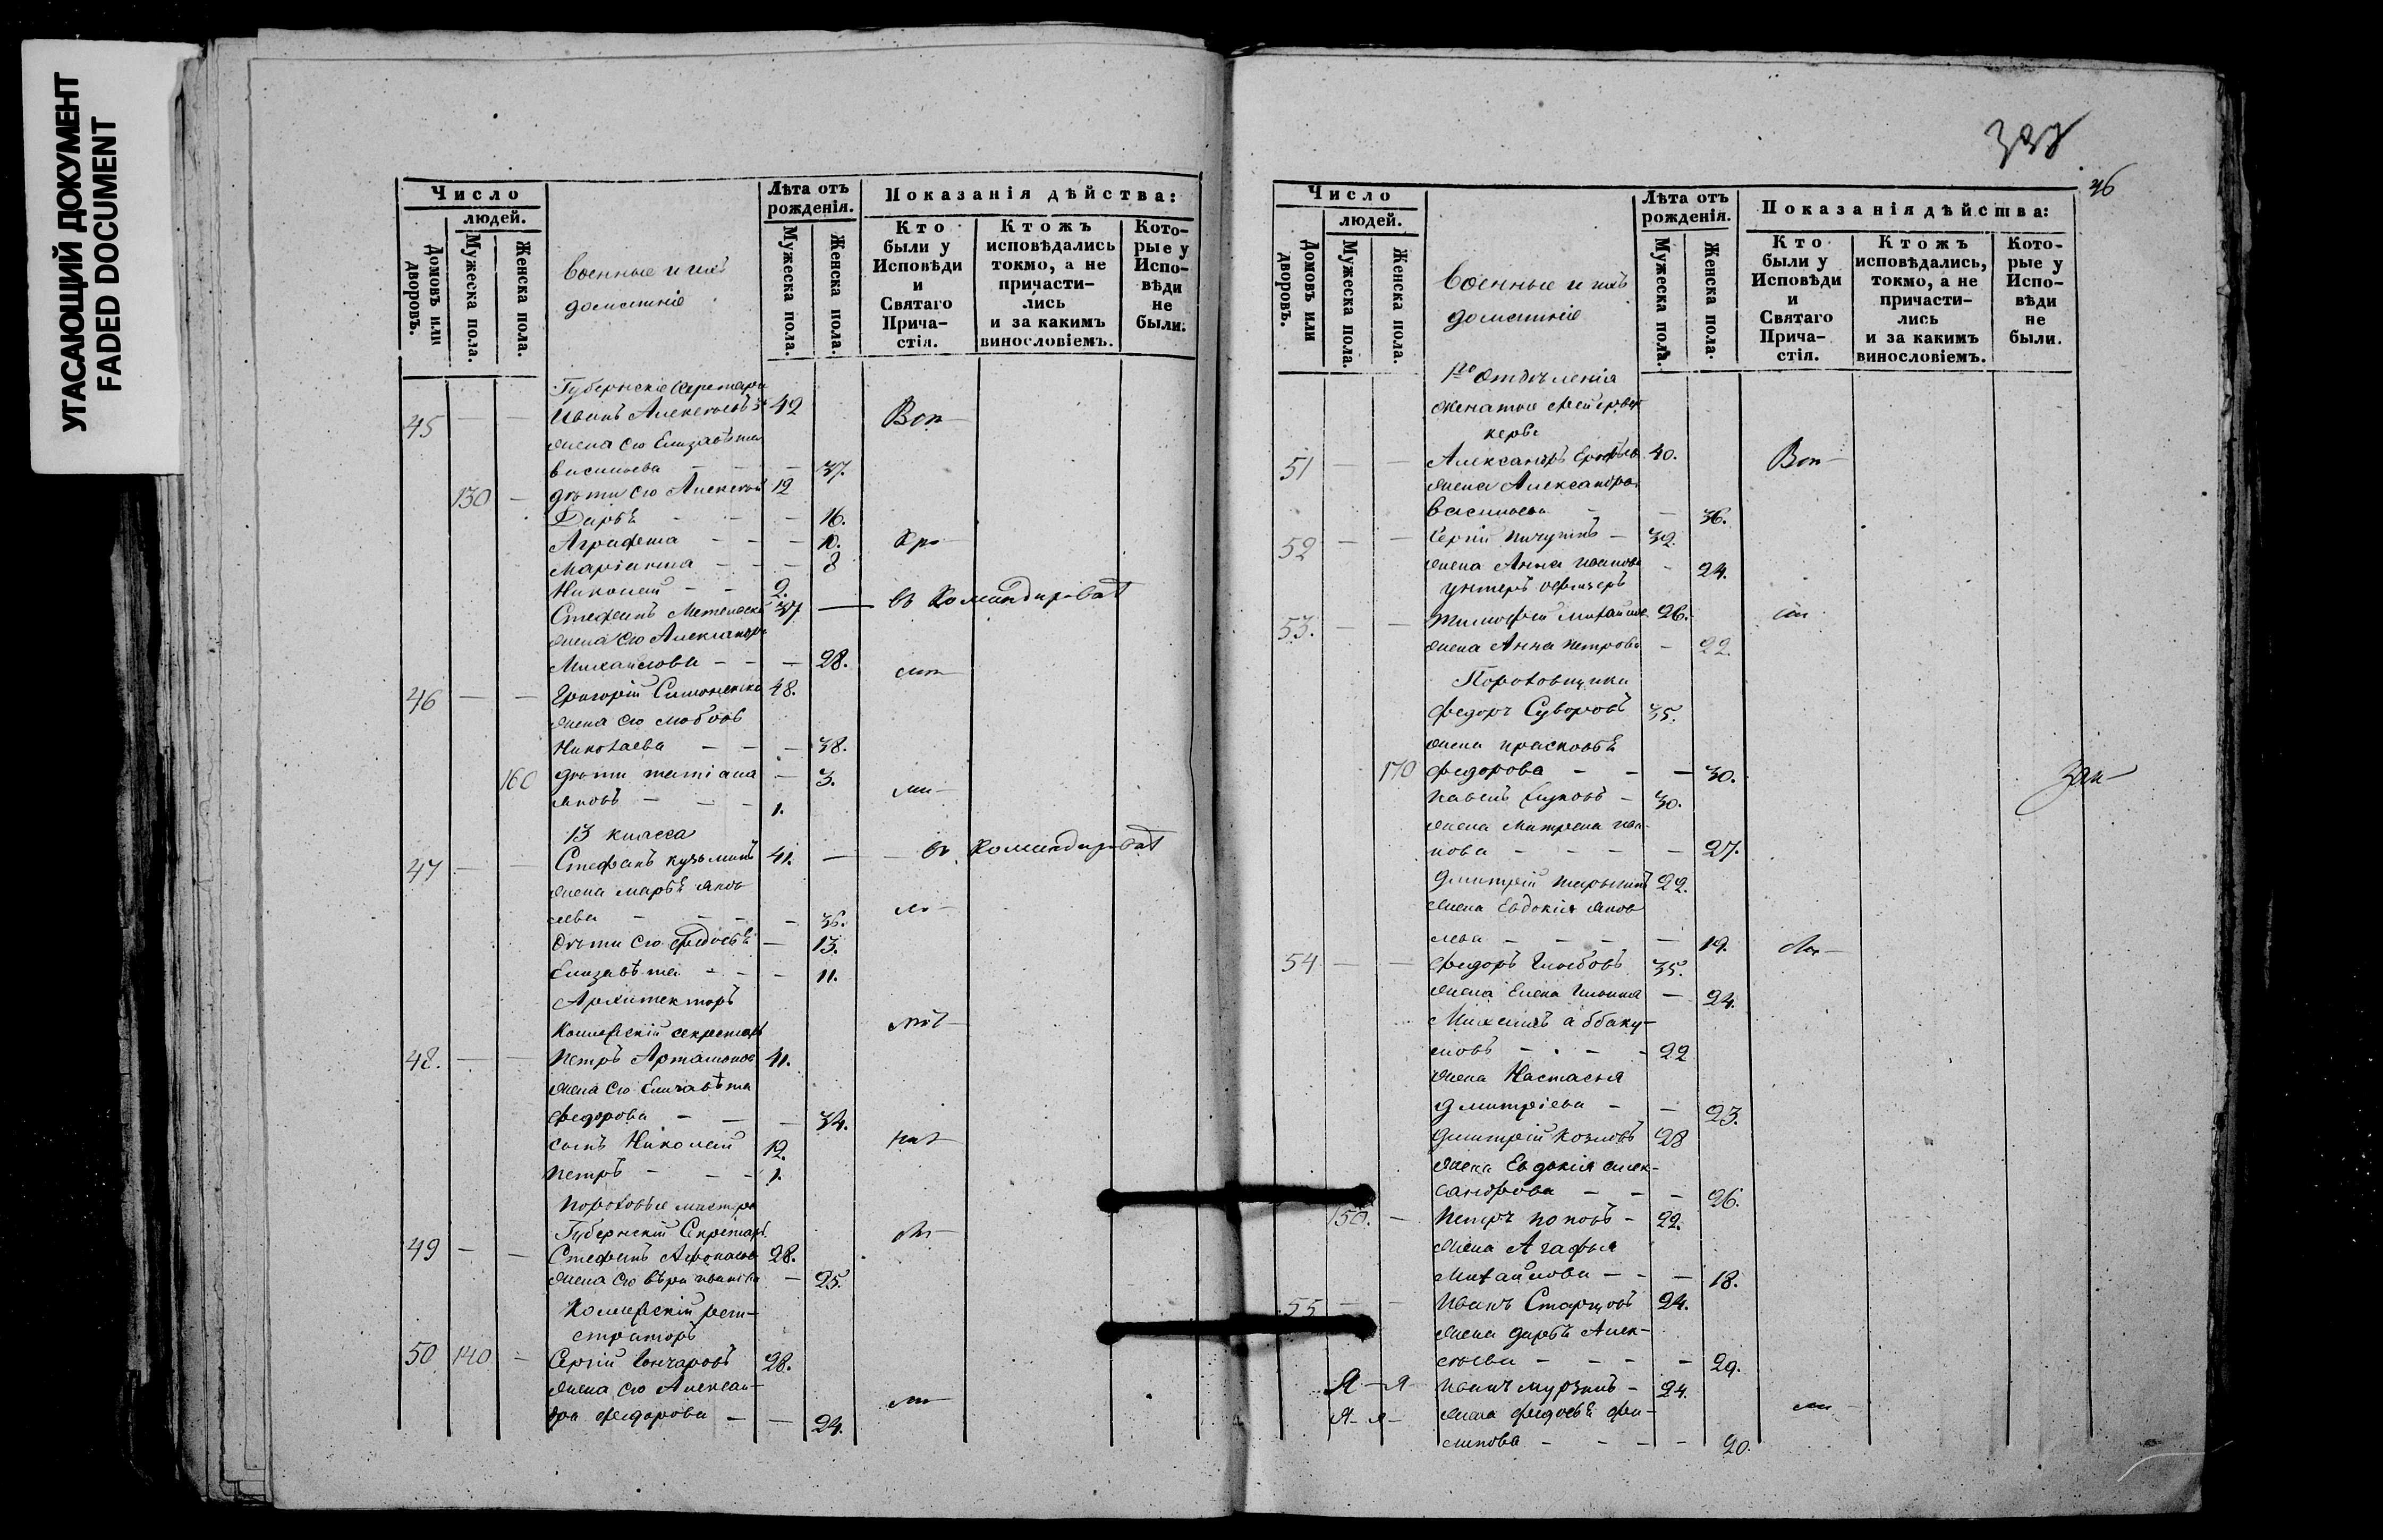 УГАСАЮЩИЙ ДОКУМЕНТ
FADED DOCUMENT
Число
людей.
Домовъ или дворовъ.
Мужеска пола.
Женска пола.
Военные и ихъ
домашніе
Лѣта отъ рожденія.
Мужеска пола.
Женска пола.
Показанія дѣйства:
Кто были у Исповѣди и Святаго Прича-стія.
Ктожъ исповѣдались токмо, а не причасти-лись и за какимъ винословіемъ.
Кото-рые у Испо-вѣди не были.
Губернскіе Секретари
45 — — Иванъ Алексѣевъ 42
жена его Елизавета
Васильева — — 37.
130 — дѣти его Алексѣй 12
Дарья — — — 16.
Агрифена — — — 10.
Маріанна — — — 8
Николай — — 2.
Стефанъ 37 — въ Командировкѣ
жена его Александра
Михайлова — — — 28.
46 — — Григорій Симоненко 48.
жена его Любовь
Николаева — — — 38.
160 дѣти Татіана — 3.
Яковъ — — — 1.
13 класса
47 — — Стефанъ Кузьминъ 41. — — въ Командировкѣ
жена Марья Яков
лева — — — — 36.
дѣти его Федосья — 13.
Елизавета — — — 11.
Архитекторъ
Коллежскій секретарь
48. — — Петръ Артамонов 41.
жена его Елизавета
Федорова — — — 34.
сынъ Николай 12.
Петръ — — — 1.
Пороховые мастера
Губернскій Секретарь.
49 — — Стефанъ 28.
жена его Вера Иванова — 25.
Коллежскій реги-
страторъ
50 140 — Сергій Гончаровъ 28.
жена его Алексан-
дра Федорова — — 24.
337
46
Число
людей.
Домовъ или дворовъ.
Мужеска пола.
Женска пола.
Военные и ихъ
домашніе
Лѣта отъ рожденія.
Мужеска пола.
Женска пола.
Показанія дѣйства:
Кто были у Исповѣди и Святаго Прича-стія.
Ктожъ исповѣдались, токмо, а не причасти-лись и за какимъ винословіемъ.
Кото-рые у Испо-вѣди не были.
1го Отдѣленія
женатые Фейервер
керы
51 — — Александръ 40.
жена Александра
Васильева — — 36.
52 — — Сергій Пичугинъ — 32.
жена Анна Иванова — 24.
Унтеръ офицеръ
53. — — Тимофей Михайлов 26.
жена Анна Петрова — 22.
Пороховщики
Федоръ Суворовъ 35.
жена Прасковья
170 Федорова — — — 30.
Павелъ — 30.
жена Матрена Ива-
нова — — — — 27.
Дмитрій 22.
жена Евдокія Яков
лева — — — — 19.
54 — — Федоръ Глѣбовъ 35.
жена Елена Ильина — 24.
Михаилъ Аббаку-
мовъ — — — 22
жена Настасья
Дмитріева — — 23.
Дмитрій Козловъ 28
жена Евдокія Алек-
сандрова — — — 26.
150. — Петръ Поповъ — 22.
жена Агафья
Михайлова — — — 18.
55 — — Иванъ Старцовъ 24.
жена Дарья Алек-
сѣева — — — — 29.
Иванъ Мурзинъ — 24.
жена Федосья Фи-
липова — — — — 20.